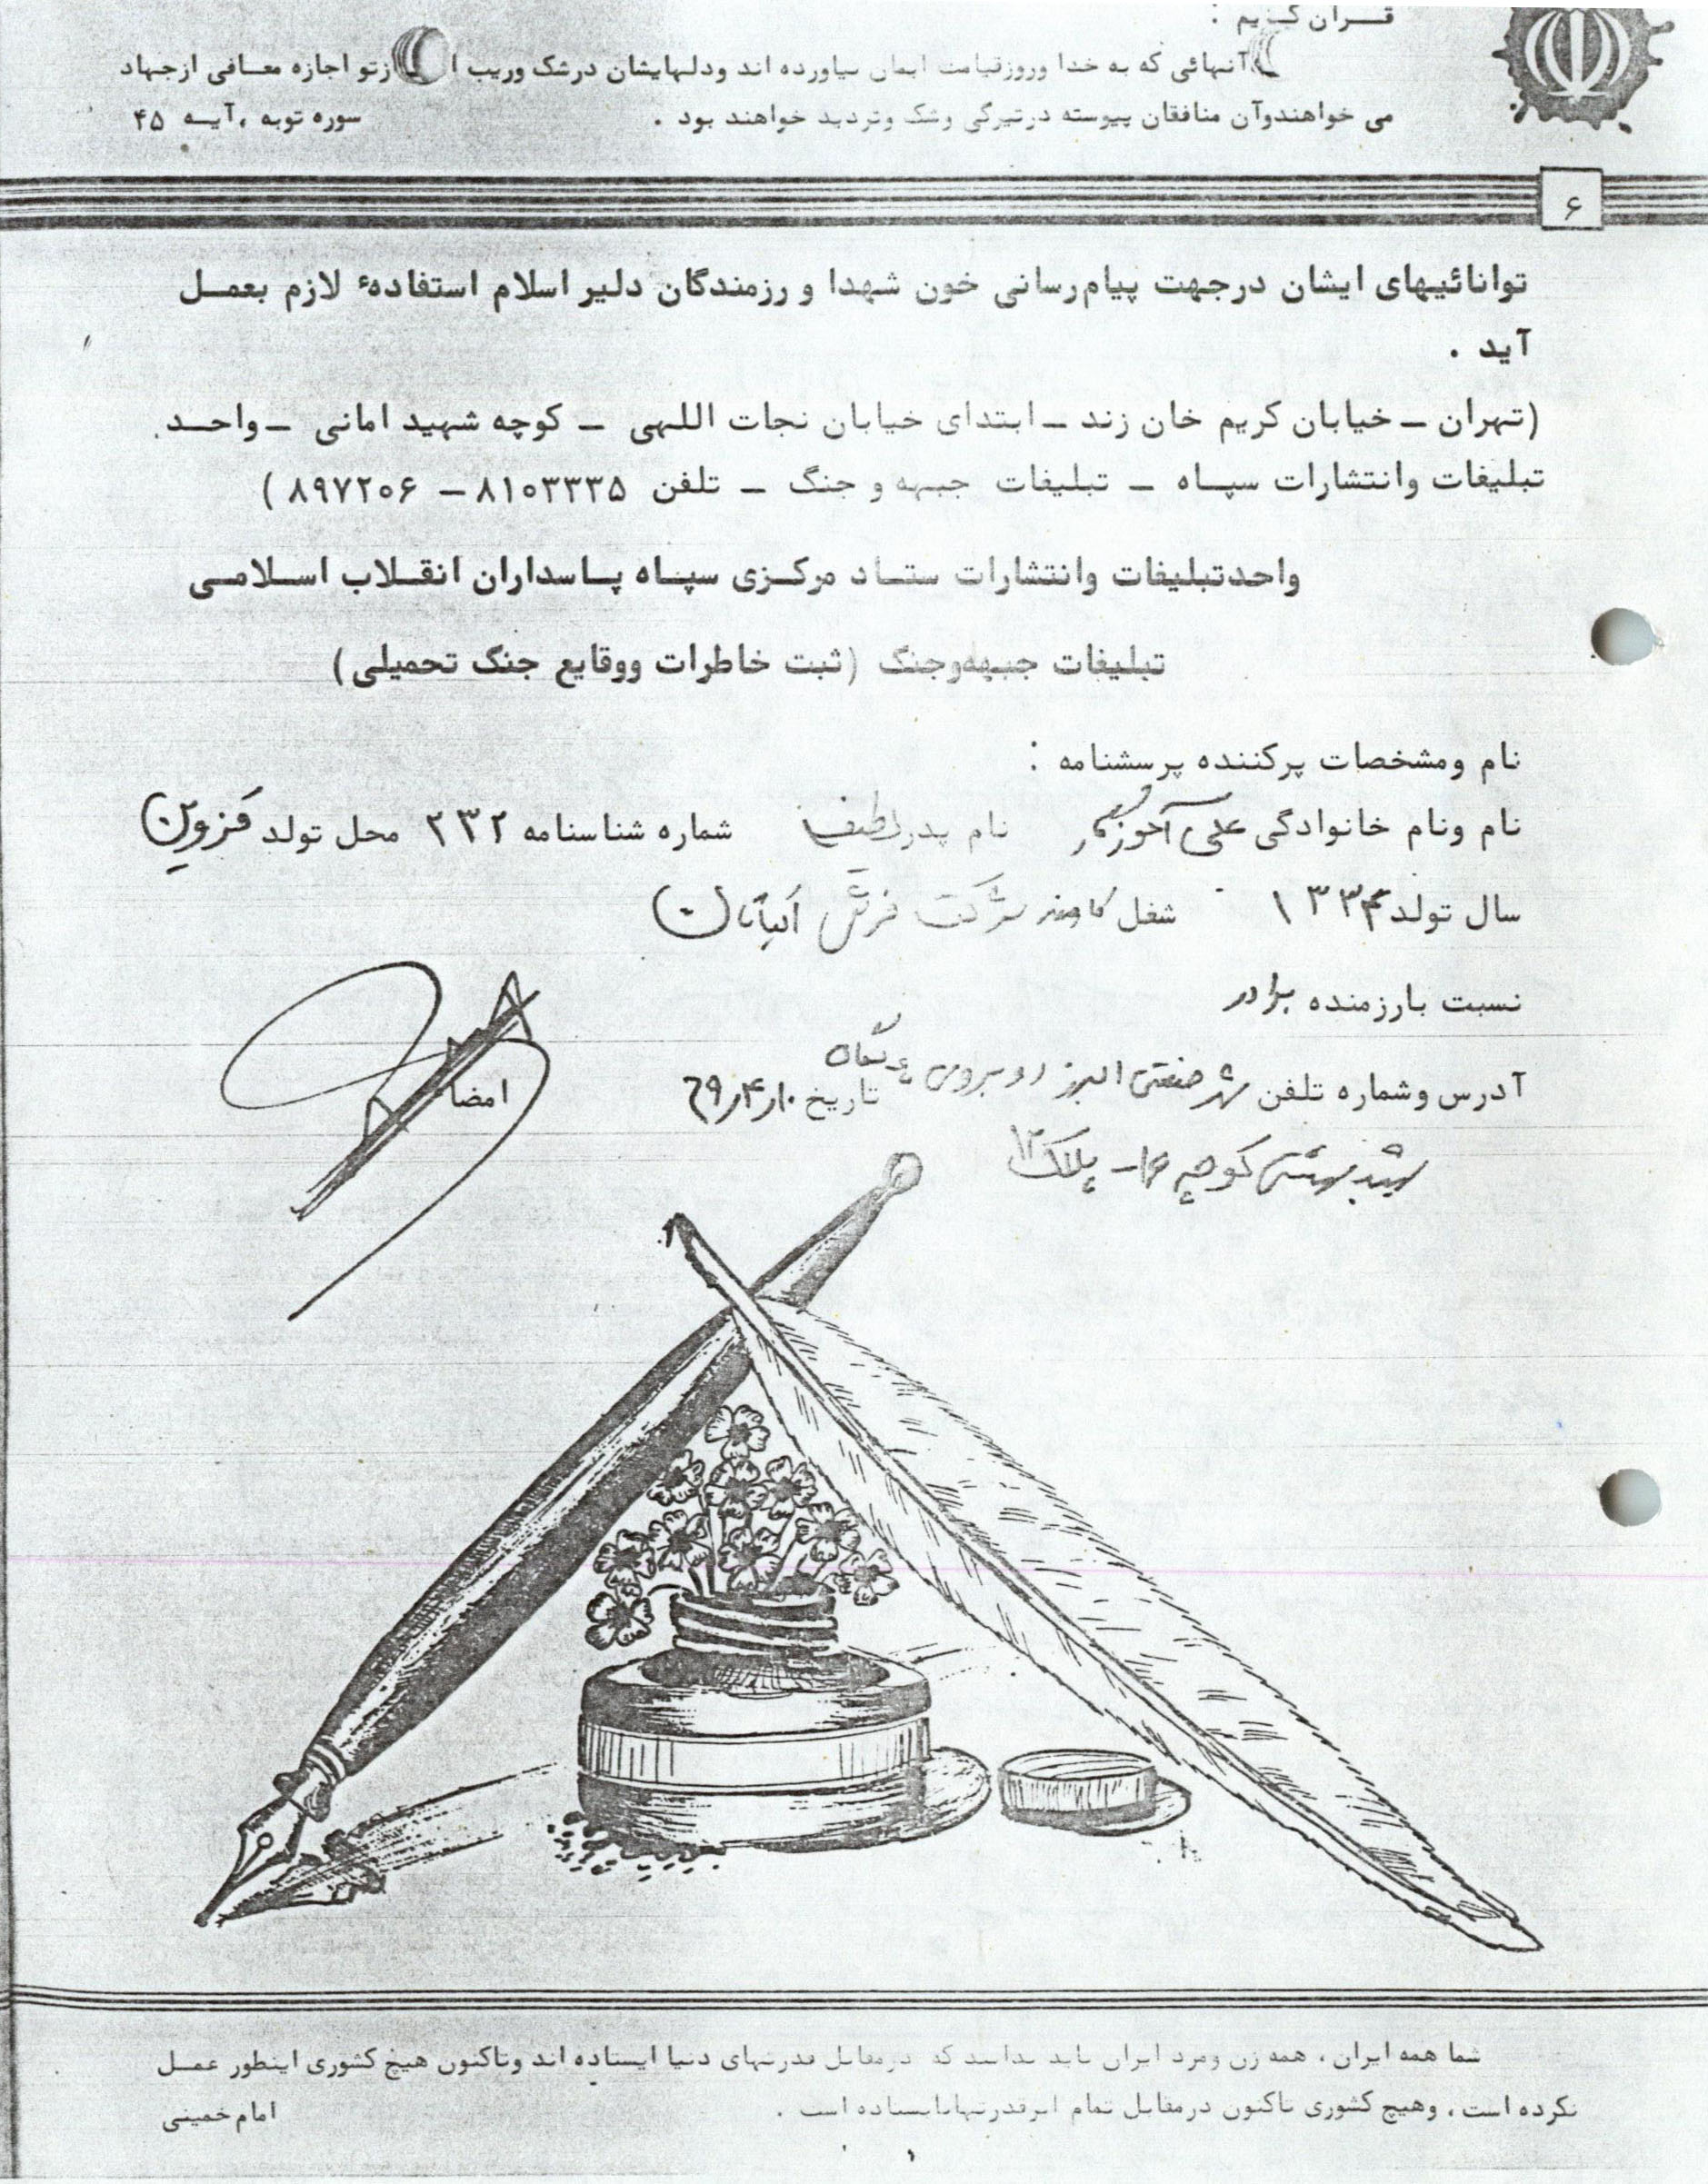 قـــران کــریم :
آنهائی که به خدا وروزقیامت ایمان نیاورده اند ودلهایشان درشک وریب ا ازتو اجازه معـافی ازجهاد
می خواهندوآن منافقان پیوسته درتیرگی وشک وتردید خواهند بود .
سوره توبه ،آیـه ۴۵
۶
توانائیهای ایشان درجهت پیام‌رسانی خون شهدا و رزمندگان دلیر اسلام استفادهٔ لازم بعمـل
آید .
(تهران ـ خیابان کریم خان زند ـ ابتدای خیابان نجات اللهی ـ کوچه شهید امانی ـ واحـد
تبلیغات وانتشارات سپـاه ـ تبلیغات جبهه و جنگ ـ تلفن ۸۱۰۳۳۳۵ ـ ۸۹۷۲۰۶ )
واحدتبلیغات وانتشارات ستـاد مرکـزی سپـاه پـاسداران انقـلاب اسـلامـی
تبلیغات جبهه‌وجنگ (ثبت خاطرات ووقایع جنگ تحمیلی)
نام ومشخصات پرکننده پرسشنامه :
نام ونام خانوادگی علی نام پدر لطیف شماره شناسنامه ۲۳۲ محل تولد قزوین
سال تولد ۱۳۳۴ شغل کارمند شرکت فرش
نسبت بارزمنده برادر
آدرس وشماره تلفن شهر صنعتی البرز روبروی تاریخ ۶۹٫۴٫۱۰ امضا
شهید بهشتی کوچه ۱۶ - پلاک ۱۲
شما همه ایران ، همه زن ومرد ایران باید بدانند که درمقابل قدرتهای دنیا ایستاده اند وتاکنون هیچ کشوری اینطور عمـل
نکرده است ، وهیچ کشوری تاکنون درمقابل تمام ابرقدرتهاناایستاده است .
امام خمینی